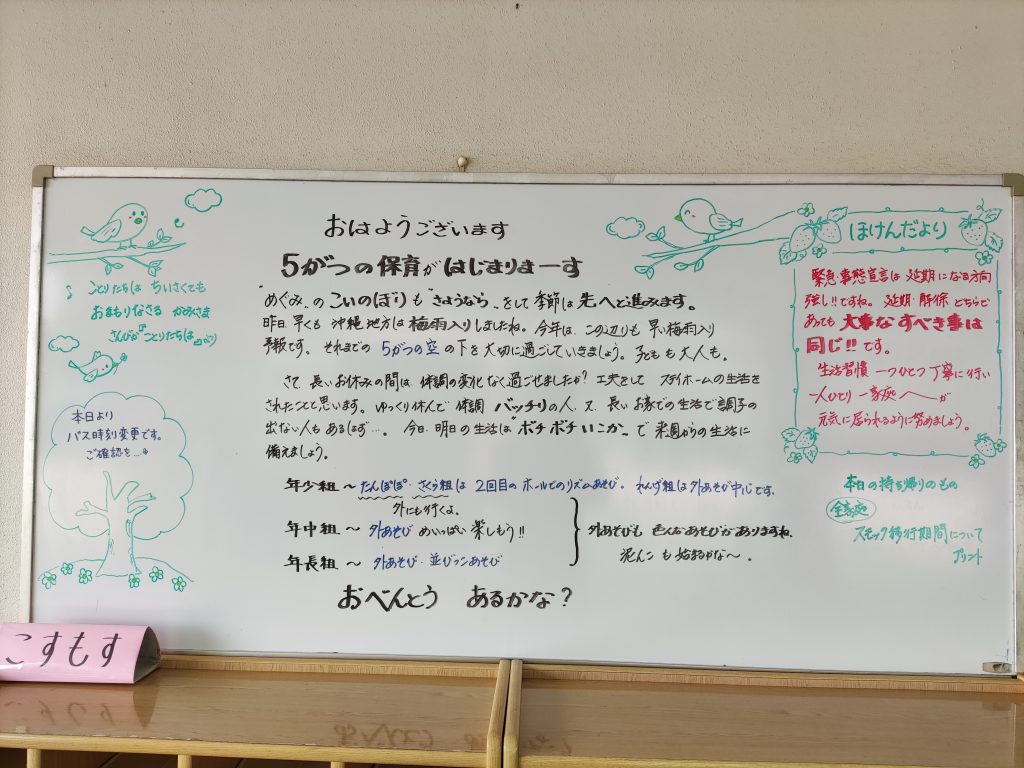 おはようございます
5がつの保育がはじまりまーす
"めぐみ"の こいのぼりも "さようなら"をして 季節は 先へと進みます。
昨日、早くも 沖縄地方は 梅雨入りしましたね。今年は、この辺りも 早い梅雨入り
予報です。それまでの 5がつの空 の下を 大切に過ごしていきましょう。子どもも大人も。
さて、長いお休みの間は、体調の変化なく過ごせましたか？工夫をして ステイホームの生活を
されたことと思います。ゆっくり休んで 体調 バッチリの人、又、長いお家での生活で 調子の
出ない人もあるはず…。今日、明日の生活は "ボチボチいこか"で 来週からの生活に
備えましょう。
年少組 〜 たんぽぽ・さくら組は 2回目のホールでのリズムあそび。れんげ組は外あそび中心です。
外にも行くよ。
年中組 〜 外あそび めいっぱい 楽しもう!!
年長組 〜 外あそび・並びっこあそび
外あそびも 色んなあそびがありますね。
泥んこも 始まるかな〜。
おべんとう あるかな？
♪ ことりたちは ちいさくても
おまもりなさる かみさま
さんびか「ことりたちは」
本日より
バス時刻変更です。
ご確認を…
ほけんだより
緊急事態宣言は 延期になる方向
強し!!ですね。延期・解除 どちらで
あっても 大事なすべき事は
同じ!! です。
生活習慣 一つひとつ 丁寧に行い
一人ひとり 一家庭 が
元気に居られるように努めましょう。
本日の持ち帰りのもの
全家庭
スモック移行期間について
プリント
こすもす